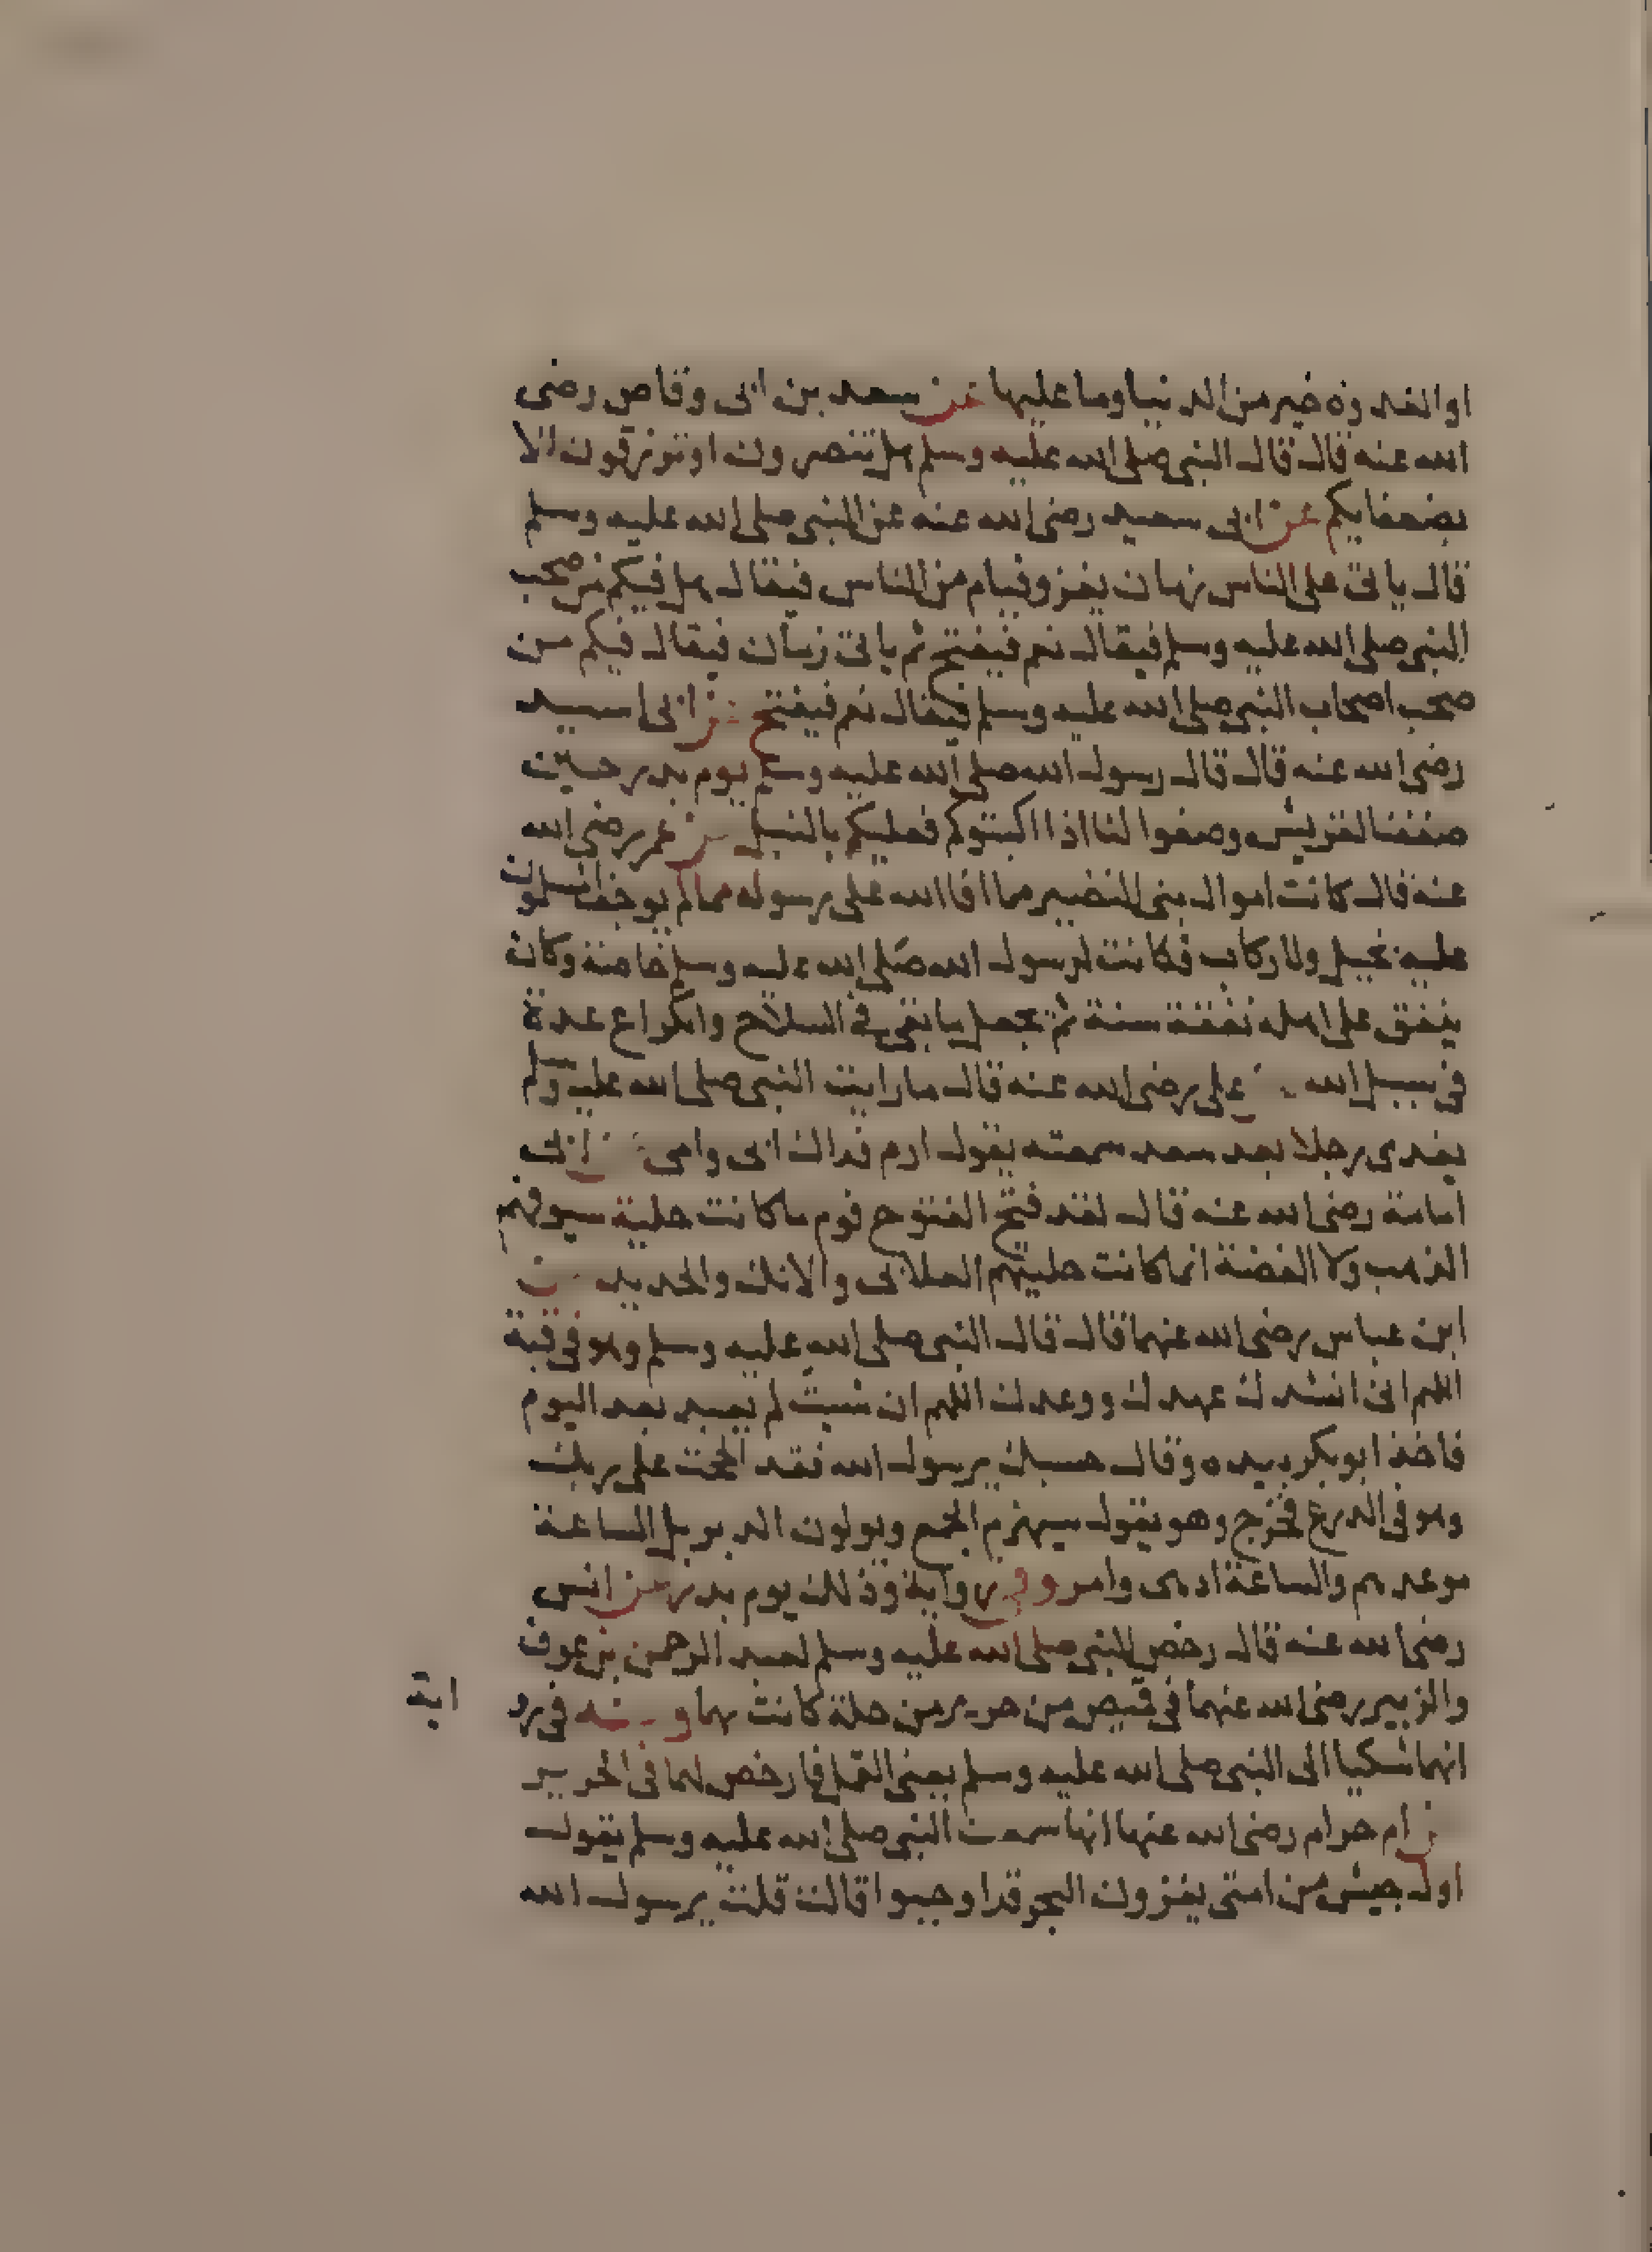 او الغدوة خير من الدنيا وما عليها عن سعد بن ابى وقاص رضى
الله عنه قال قال النبى صلى الله عليه وسلم هل تنصرون او ترزقون الا
بضعفايكم عن ابى سعيد رضى الله عنه عن النبى صلى الله عليه وسلم
قال ياتى على الناس زمان يغزو فيام من الناس فيقال هل فيكم من صحب
النبى صلى الله عليه وسلم فيقال نعم فيفتح ثم ياتى زمان فيقال فيكم من
صحب اصحاب النبى صلى الله عليه وسلم فيقال نعم فيفتح عن ابى اسيد
رضى الله عنه قال قال رسول الله صلى الله عليه وسلم يوم بدر حين
صففنا لقريش وصفوا لنا اذا اكثبوكم فعليكم بالنبل عن عمر رضى الله
عنه قال كانت اموال بنى النضير مما افا الله على رسوله مما لم يوجف المسلمون
عليه بخيل ولا ركاب فكانت لرسول الله صلى الله عليه وسلم خاصة وكان
ينفق على اهله نفقة سنة ثم يجعل ما بقى فى السلاح والكراع عدة
فى سبيل الله عن على رضى الله عنه قال ما رايت النبى صلى الله عليه وسلم
يفدى رجلا بعد سعد سمعته يقول ارم فداك ابى وامى عن ابى
امامة رضى الله عنه قال لقد فتح الفتوح قوم ما كانت حلية سيوفهم
الذهب ولا الفضة انما كانت حليتهم العلابى والانك والحديد عن
ابن عباس رضى الله عنهما قال قال النبى صلى الله عليه وسلم وهو فى قبة
اللهم انى انشدك عهدك ووعدك اللهم ان شيت لم يعبد بعد اليوم
فاخذ ابو بكر بيده وقال حسبك يرسول الله فقد الححت على ربك
وهو فى الدرع فخرج وهو يقول سيهزم الجمع ويولون الدبر بل الساعة
موعدهم والساعة ادهى وامر وفى رواية وذلك يوم بدر عن انس
رضى الله عنه قال رخص النبى صلى الله عليه وسلم لعبد الرحمن بن عوف
والزبير رضى الله عنهما فى قميص من حرير من حكة كانت بهما وعنه فى رو
اية
انهما شكيا الى النبى صلى الله عليه وسلم يعنى القمل فارخص لهما فى الحرير
عن ام حرام رضى الله عنها انها سمعت النبى صلى الله عليه وسلم يقول
اول جيش من امتى يغزون البحر قد اوجبوا قالت قلت يرسول الله